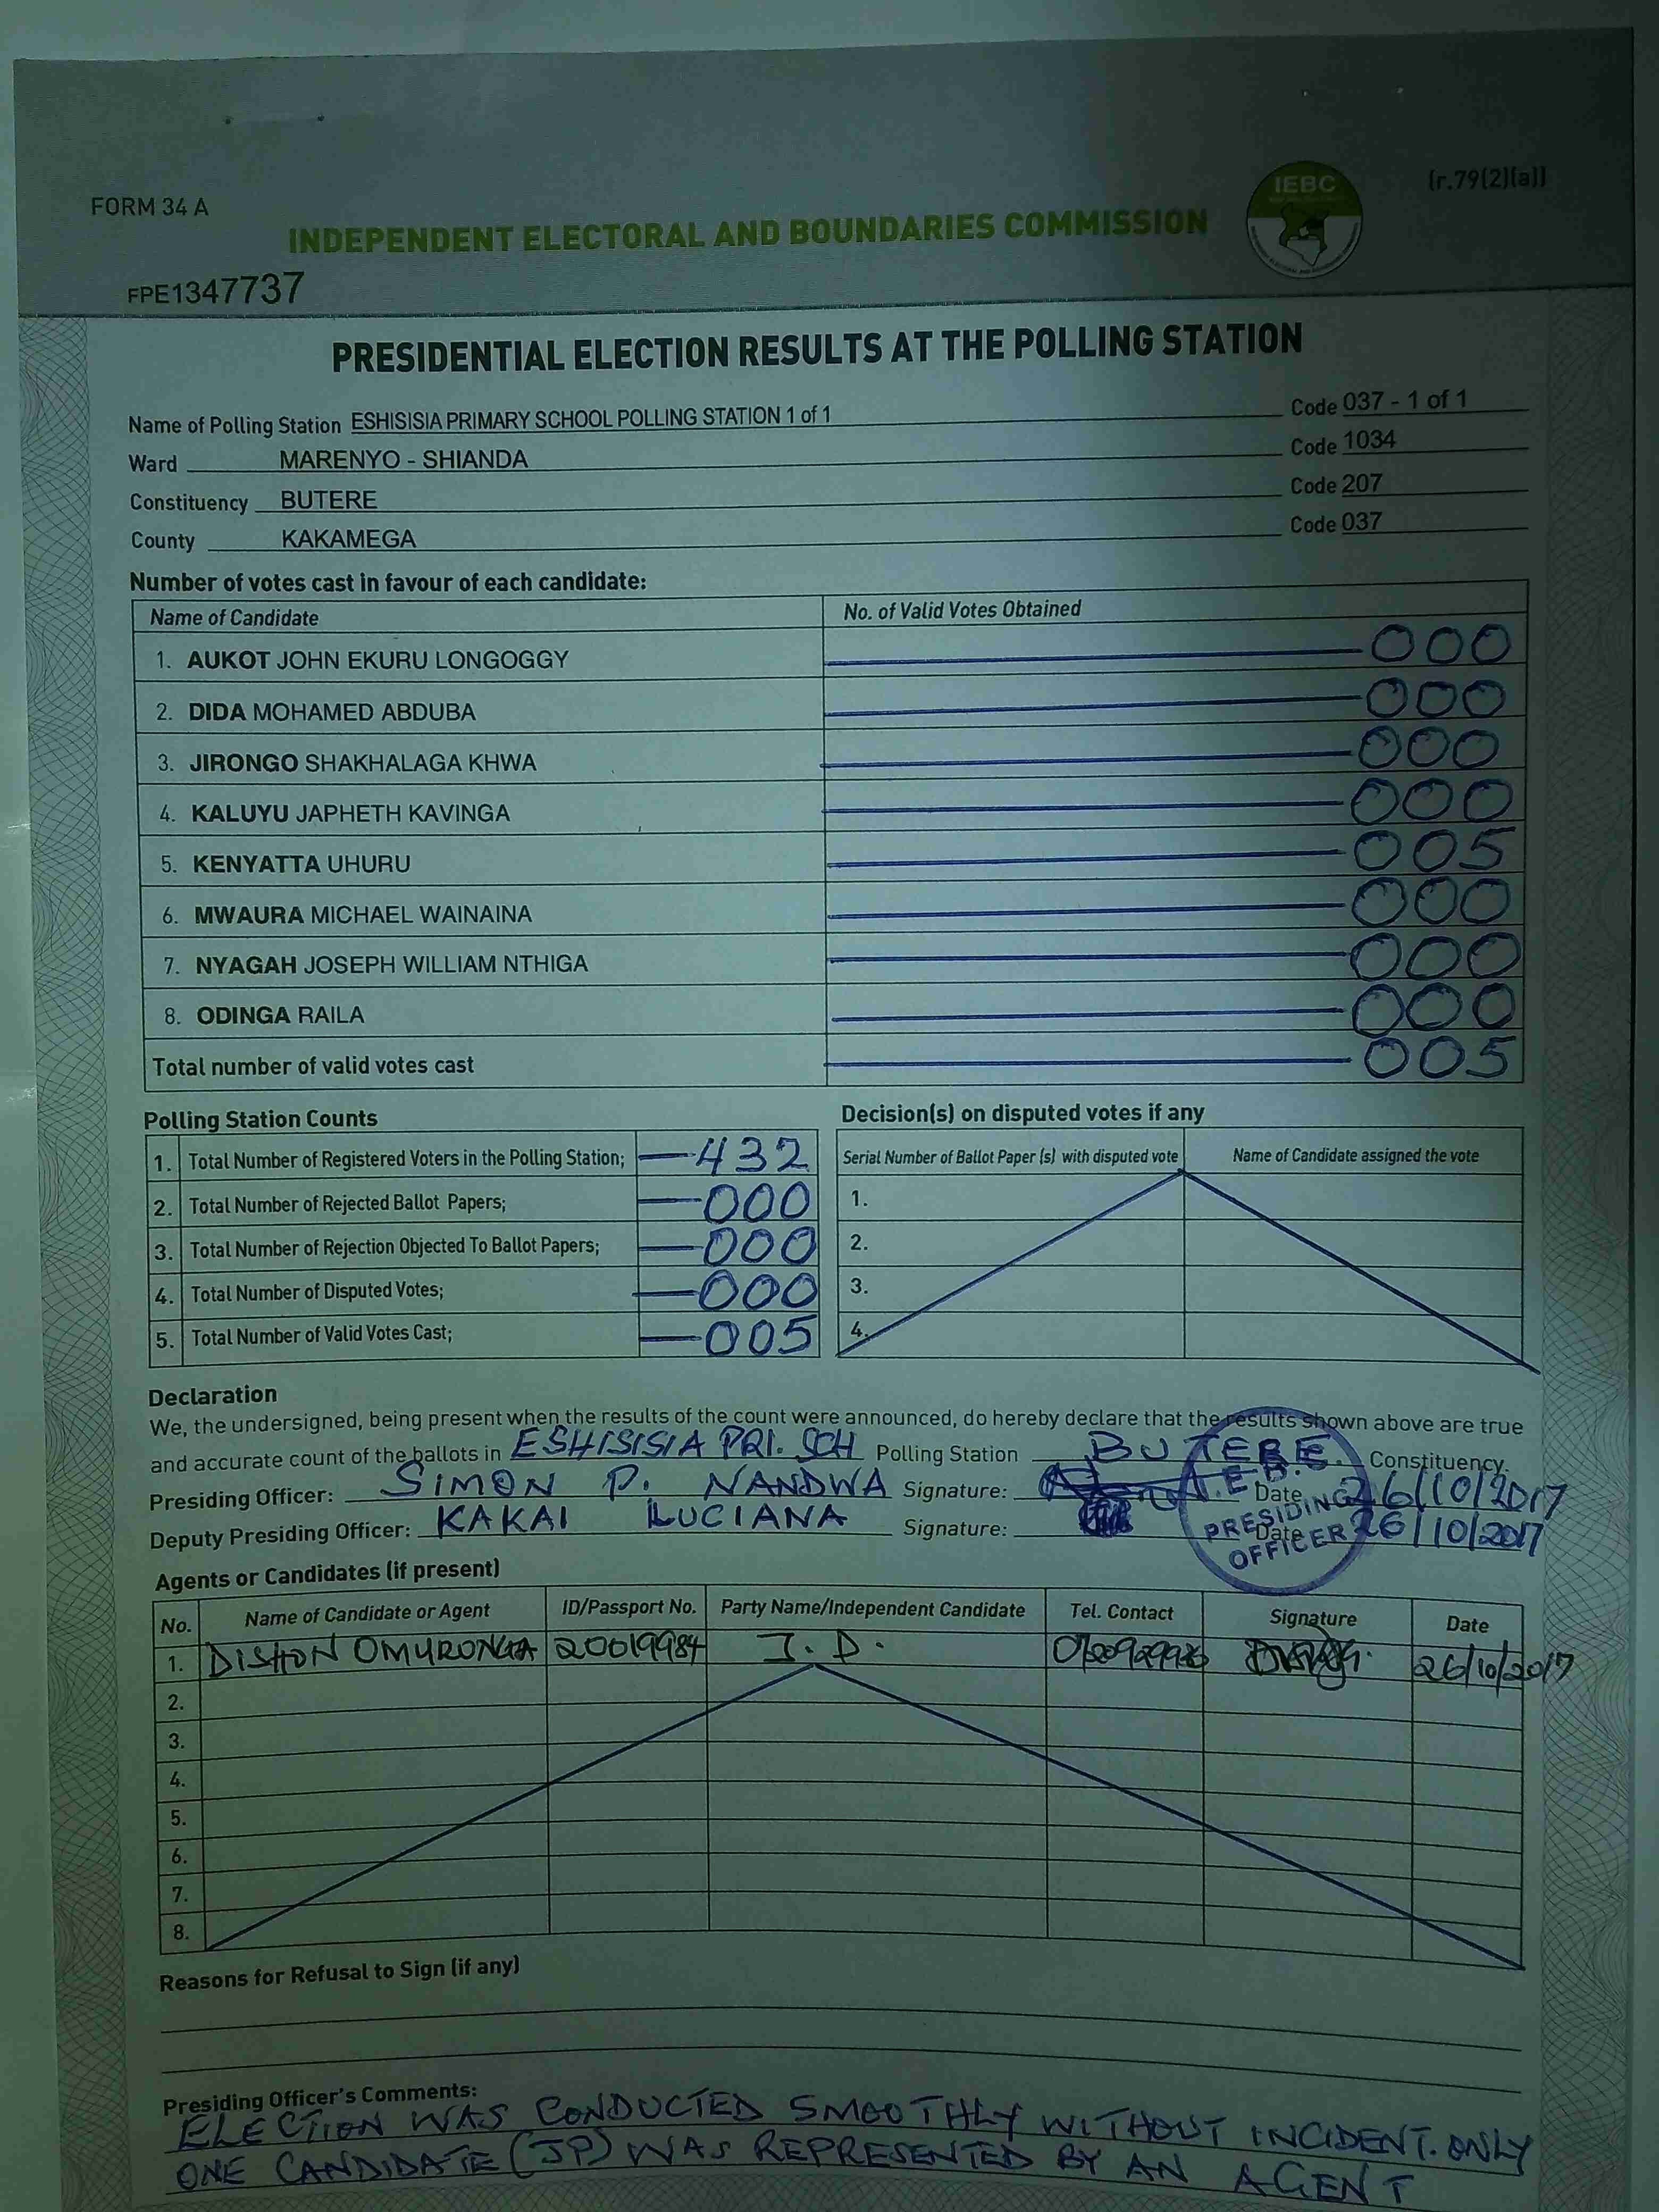 FORM 34 A
(r.79(2)(a))
IEBC
INDEPENDENT ELECTORAL AND BOUNDARIES COMMISSION
FPE1347737
PRESIDENTIAL ELECTION RESULTS AT THE POLLING STATION
Name of Polling Station ESHISISIA PRIMARY SCHOOL POLLING STATION 1 of 1 Code 037 - 1 of 1
Ward MARENYO - SHIANDA Code 1034
Constituency BUTERE Code 207
County KAKAMEGA Code 037
Number of votes cast in favour of each candidate:
Name of Candidate No. of Valid Votes Obtained
1. AUKOT JOHN EKURU LONGOGGY 000
2. DIDA MOHAMED ABDUBA 000
3. JIRONGO SHAKHALAGA KHWA 000
4. KALUYU JAPHETH KAVINGA 000
5. KENYATTA UHURU 005
6. MWAURA MICHAEL WAINAINA 000
7. NYAGAH JOSEPH WILLIAM NTHIGA 000
8. ODINGA RAILA 000
Total number of valid votes cast 005
Polling Station Counts
1. Total Number of Registered Voters in the Polling Station; 432
2. Total Number of Rejected Ballot Papers; 000
3. Total Number of Rejection Objected To Ballot Papers; 000
4. Total Number of Disputed Votes; 000
5. Total Number of Valid Votes Cast; 005
Decision(s) on disputed votes if any
Serial Number of Ballot Paper (s) with disputed vote Name of Candidate assigned the vote
1.
2.
3.
4.
Declaration
We, the undersigned, being present when the results of the count were announced, do hereby declare that the results shown above are true
and accurate count of the ballots in ESHISISIA PRI. SCH Polling Station BUTERE Constituency.
Presiding Officer: SIMON P. NANDWA Signature: Date 26/10/2017
Deputy Presiding Officer: KAKAI LUCIANA Signature: Date 26/10/2017
PRESIDING
OFFICER
Agents or Candidates (if present)
No. Name of Candidate or Agent ID/Passport No. Party Name/Independent Candidate Tel. Contact Signature Date
1. DISHON OMURONGA 20019984 J. P. 26/10/2017
2.
3.
4.
5.
6.
7.
8.
Reasons for Refusal to Sign (if any)
Presiding Officer's Comments:
ELECTION WAS CONDUCTED SMOOTHLY WITHOUT INCIDENT. ONLY
ONE CANDIDATE (JP) WAS REPRESENTED BY AN AGENT